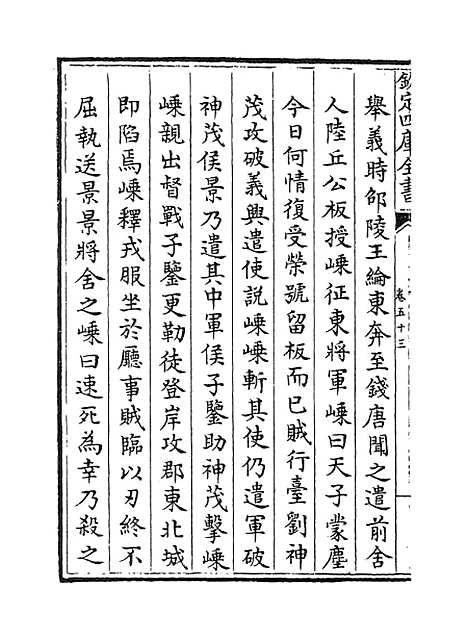 欽定四庫全書
卷五十三
舉義時邵陵王綸東奔至錢唐聞之遣前舍
人陸丘公板授嵊征東將軍嵊曰天子蒙塵
今日何情復受榮號留板而已賊行臺劉神
茂攻破義興遣使說嵊嵊斬其使仍遣軍破
神茂侯景乃遣其中軍侯子鑒助神茂擊嵊
嵊親出督戰子鑒更勒徒登岸攻郡東北城
即陷焉嵊釋戎服坐於廳事賊臨以刃終不
屈執送景景將舍之嵊曰速死為幸乃殺之